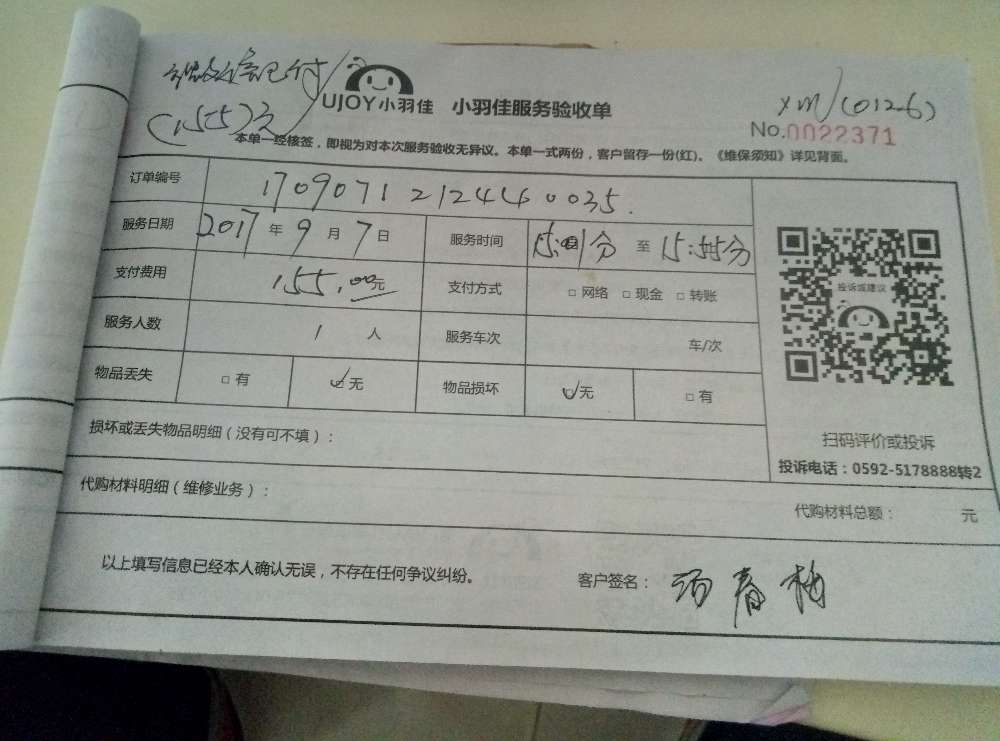 已付
(155)元
UJOY小羽佳 小羽佳服务验收单
XM/(0126)
No.0022371
本单一经核签，即视为对本次服务验收无异议。本单一式两份，客户留存一份(红)。《维保须知》详见背面。
订单编号 170907121244600035.
服务日期 2017年9月7日 服务时间 分 至 15:55分
支付费用 155.00元 支付方式 □网络 □现金 □转账
投诉或建议
服务人数 1 人 服务车次 车/次
物品丢失 □有 ☑无 物品损坏 ☑无 □有
损坏或丢失物品明细（没有可不填）：
扫码评价或投诉
投诉电话：0592-5178888转2
代购材料明细（维修业务）：
代购材料总额： 元
以上填写信息已经本人确认无误，不存在任何争议纠纷。 客户签名： 春梅